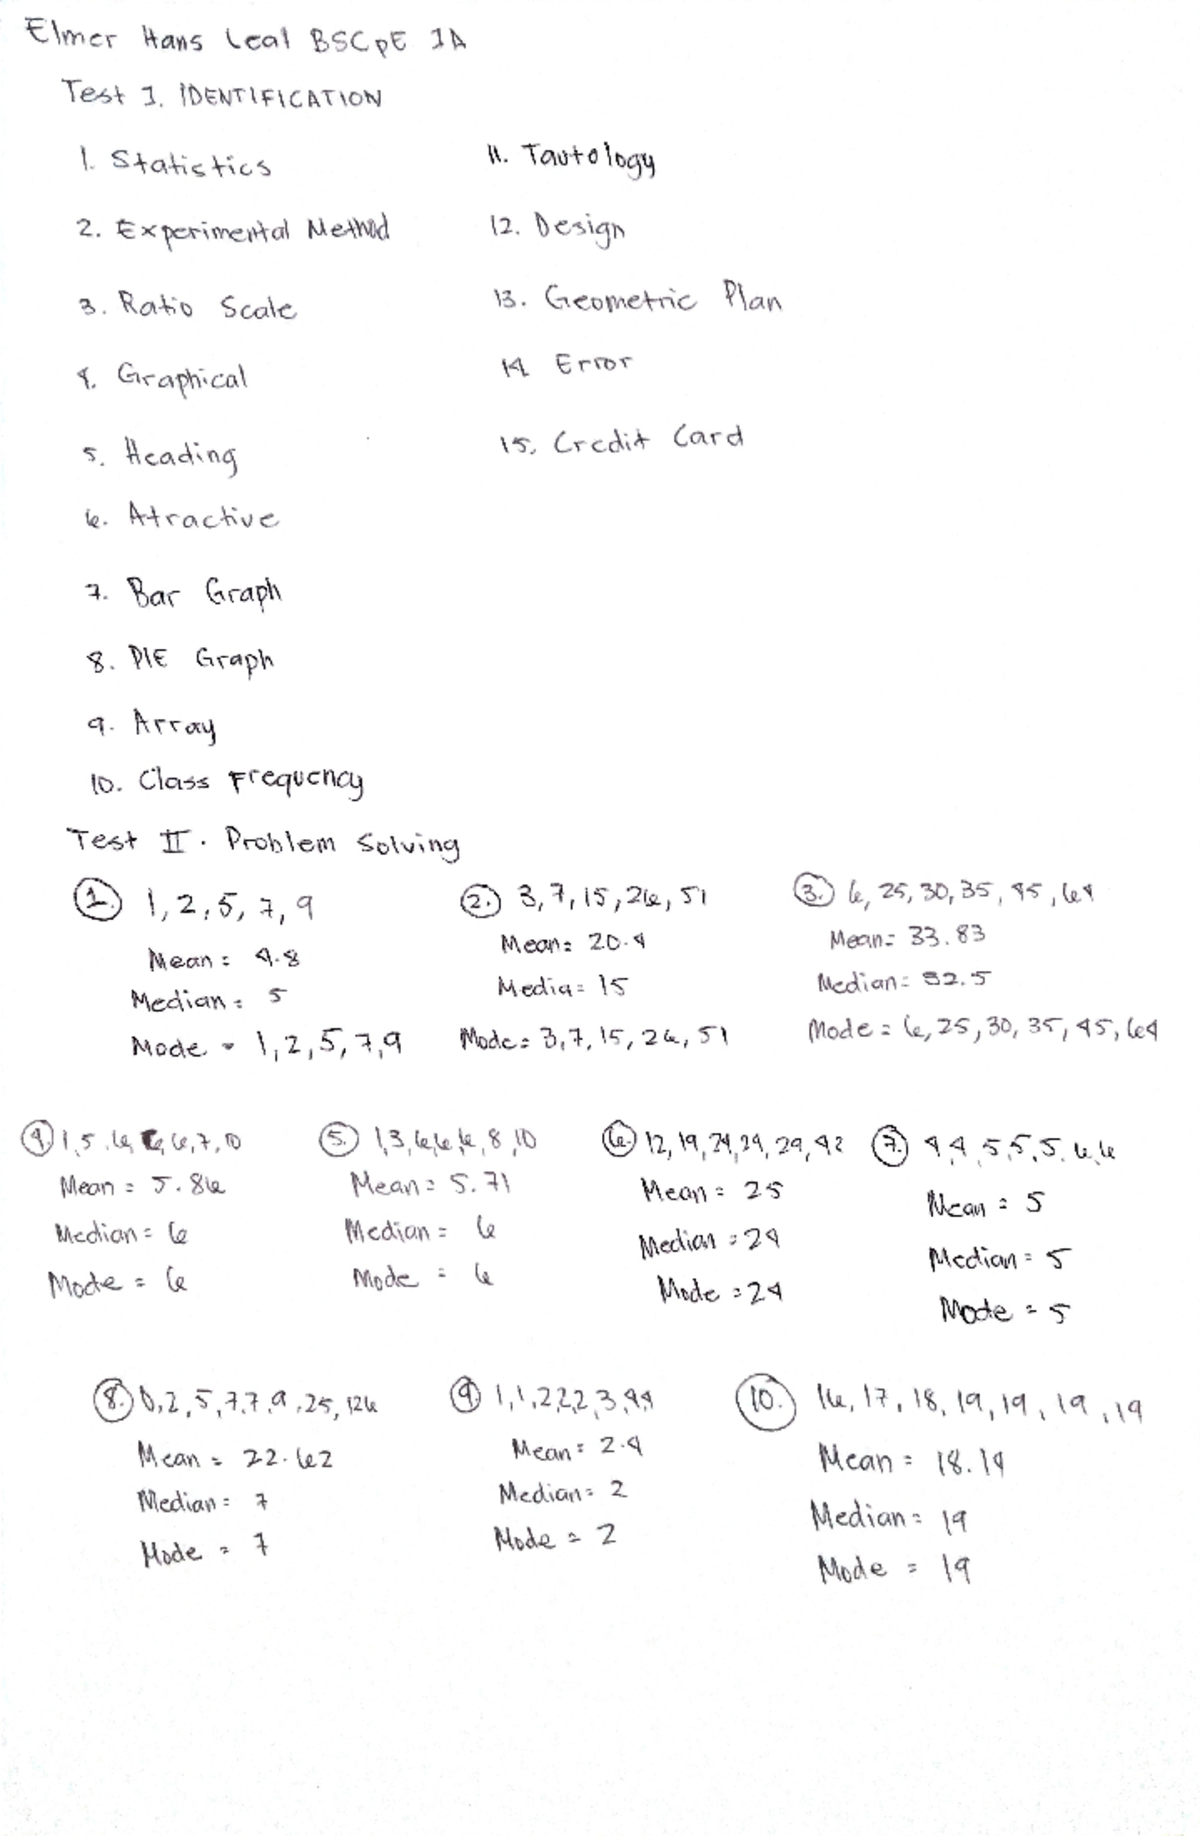 Elmer Hans Leal BSCpE 1A
Test I. IDENTIFICATION
1. Statistics
2. Experimental Method
3. Ratio Scale
4. Graphical
5. Heading
6. Atractive
7. Bar Graph
8. PIE Graph
9. Array
10. Class Frequency
11. Tautology
12. Design
13. Geometric Plan
14 Error
15. Credit Card
Test II. Problem Solving
1. 1, 2, 5, 7, 9
Mean = 4.8
Median = 5
Mode = 1, 2, 5, 7, 9
2. 3, 7, 15, 26, 51
Mean = 20.4
Media = 15
Mode = 3, 7, 15, 26, 51
3. 6, 25, 30, 35, 45, 64
Mean = 33.83
Median = 32.5
Mode = 6, 25, 30, 35, 45, 64
4 1, 5, 6, 6, 6, 7, 10
Mean = 5.86
Median = 6
Mode = 6
5. 1, 3, 6, 6, 6, 8, 10
Mean = 5.71
Median = 6
Mode = 6
6. 12, 19, 24, 24, 29, 42
Mean = 25
Median = 24
Mode = 24
7. 4, 4, 5, 5, 5, 6, 6
Mean = 5
Median = 5
Mode = 5
8. 0, 2, 5, 7, 7, 9, 25, 126
Mean = 22.62
Median = 7
Mode = 7
9 1, 1, 2, 2, 2, 2, 3, 4, 4
Mean = 2.4
Median = 2
Mode = 2
10. 16, 17, 18, 19, 19, 19, 19
Mean = 18.14
Median = 19
Mode = 19